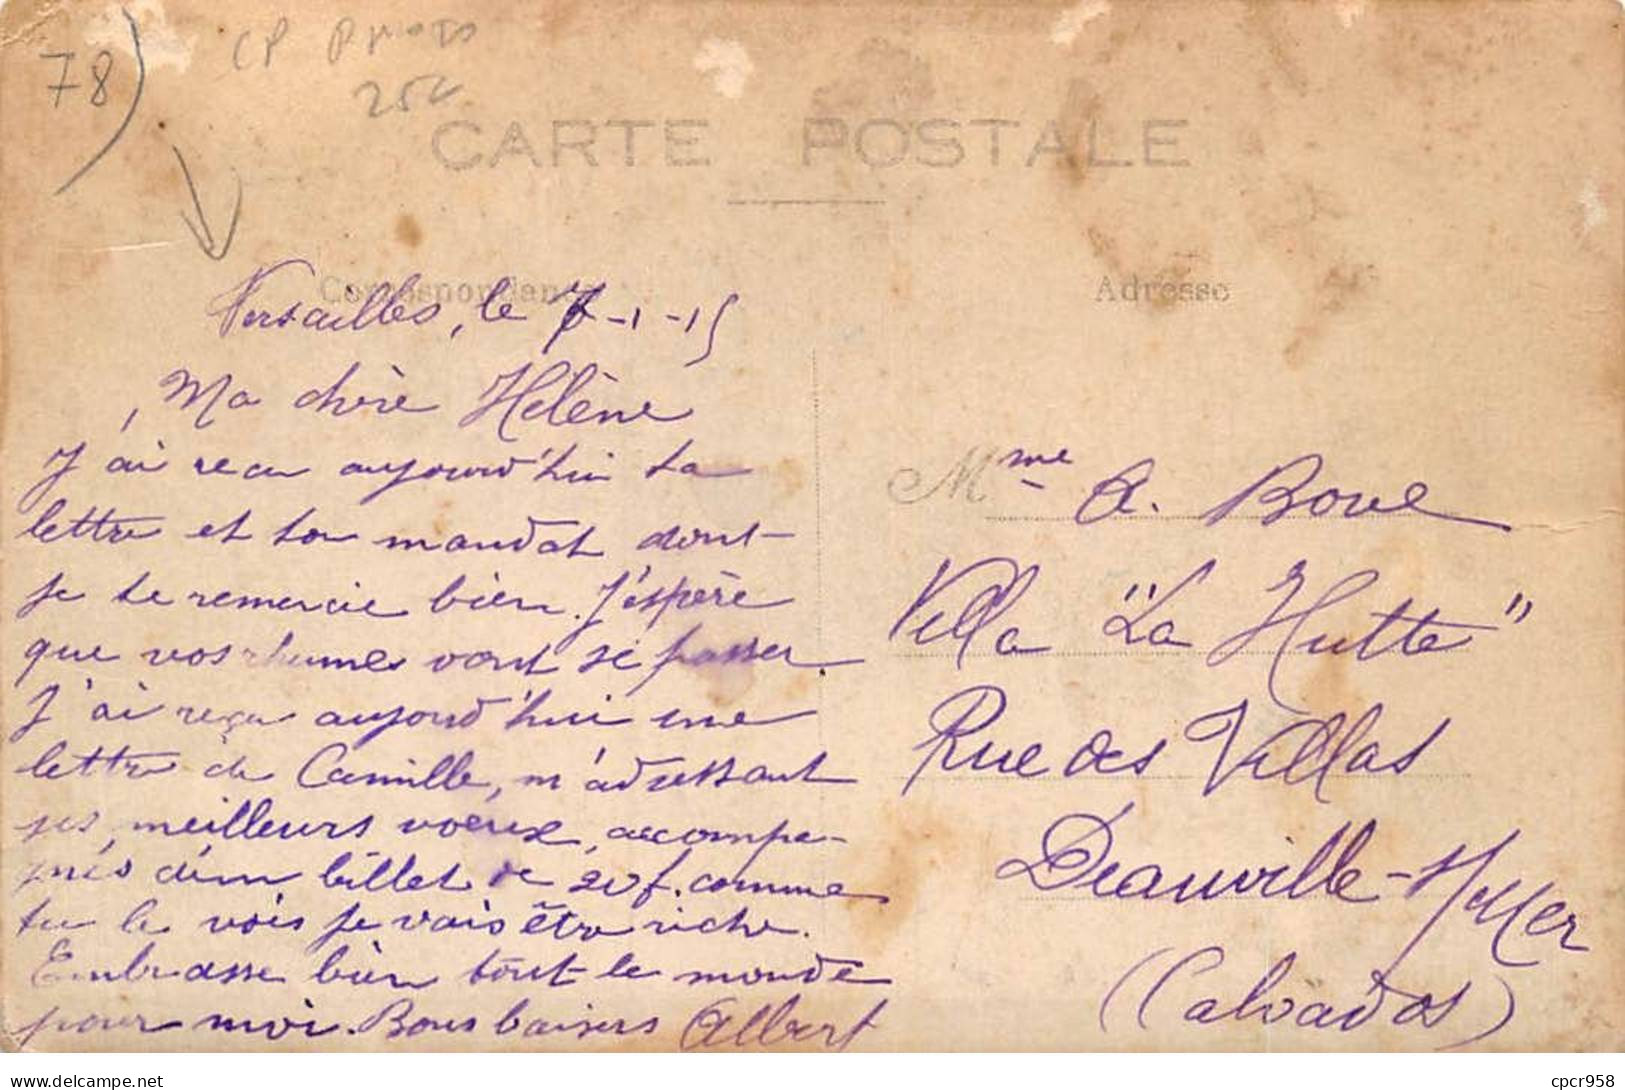 78)
CP PHOTO
25€
CARTE POSTALE
Correspondance
Adresse
Versailles, le 7-1-15
Ma chère Hélène
J'ai recu aujourd'hui ta
lettre et ton mandat dont
je te remercie bien. J'espère
que vos rhumes vont se passer.
J'ai reçu aujourd'hui une
lettre de Camille, m'adressant
ses meilleurs voeux, accompa-
gnés d'un billet de 20f. comme
tu le vois je vais être riche.
Embrasse bien tout le monde
pour moi. Bons baisers Albert
Mme A. Bove
Villa "La Hutte"
Rue des Villas
Deauville-s/Mer
(Calvados)
delcampe.net
cpcr958